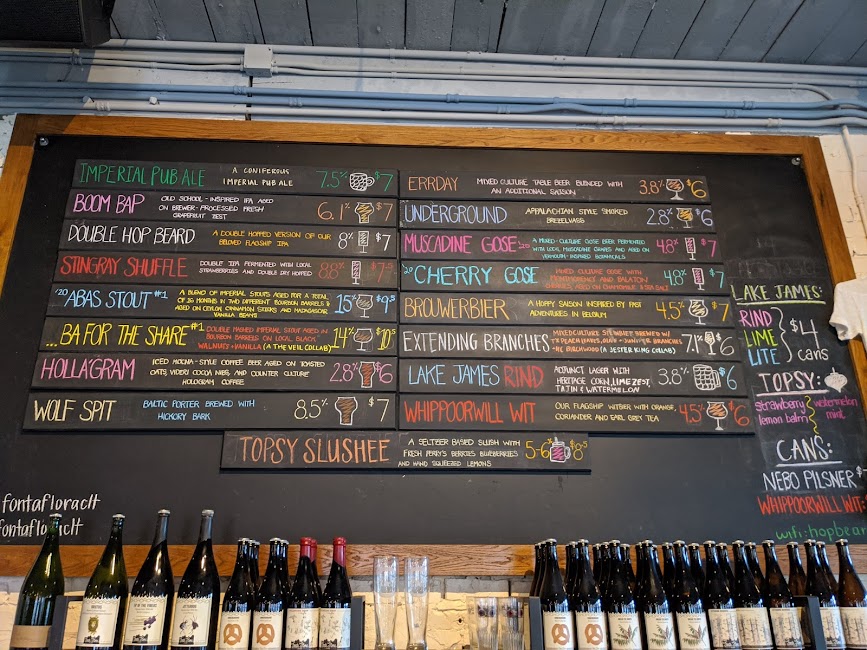 IMPERIAL PUB ALE
A CONIFEROUS
IMPERIAL PUB ALE
7.5% $7
BOOM BAP
OLD SCHOOL-INSPIRED IPA AGED
ON BREWER-PROCESSED FRESH
GRAPEFRUIT ZEST
6.1% $7
DOUBLE HOP BEARD
A DOUBLE HOPPED VERSION OF OUR
BELOVED FLAGSHIP IPA
8% $7
STINGRAY SHUFFLE
DOUBLE IPA FERMENTED WITH LOCAL
STRAWBERRIES AND DOUBLE DRY HOPPED
8.8%
'20 ABAS STOUT #1
A BLEND OF IMPERIAL STOUTS AGED FOR A TOTAL
OF 26 MONTHS IN TWO DIFFERENT BOURBON BARRELS &
AGED ON CEYLON CINNAMON STICKS AND MADAGASCAR
VANILLA BEANS
15% $9.5
...BA FOR THE SHARE #1
DOUBLE MASHED IMPERIAL STOUT AGED IN
BOURBON BARRELS ON LOCAL BLACK
WALNUTS + VANILLA (A THE VEIL COLLAB)
14% $10.5
HOLLA'GRAM
ICED MOCHA-STYLE COFFEE BEER AGED ON TOASTED
OATS, VIDERI COCOA NIBS, AND COUNTER CULTURE
HOLOGRAM COFFEE
2.8% $6
WOLF SPIT
BALTIC PORTER BREWED WITH
HICKORY BARK
8.5% $7
ERRDAY
MIXED CULTURE TABLE BEER BLENDED WITH
AN ADDITIONAL SAISON
3.8% $6
UNDERGROUND
APPALACHIAN STYLE SMOKED
2.8% $6
MUSCADINE GOSE '20
A MIXED-CULTURE GOSE BEER FERMENTED
WITH LOCAL MUSCADINE GRAPES AND AGED ON
VERMOUTH-INSPIRED BOTANICALS
4.8% $7
'20 CHERRY GOSE
MIXED CULTURE GOSE WITH
MONTMORENCY AND BALATON
CHERRIES, AGED ON CHAMOMILE & SEA SALT
4.8% $7
BROUWERBIER
A HOPPY SAISON INSPIRED BY PAST
ADVENTURES IN BELGIUM
4.5% $7
EXTENDING BRANCHES
MIXED CULTURE
(A JESTER KING COLLAB)
7.1% $6
LAKE JAMES RIND
ADJUNCT LAGER WITH
HERITAGE CORN, LIME ZEST,
TAJIN & WATERMELON
3.8% $6
WHIPPOORWILL WIT
OUR FLAGSHIP WITBIER WITH ORANGE,
CORIANDER AND EARL GREY TEA
4.5% $6
TOPSY SLUSHEE
A SELTZER BASED SLUSH WITH
FRESH PERRY'S BERRIES BLUEBERRIES
AND HAND SQUEEZED LEMONS
5-6% $8.5
LAKE JAMES:
RIND
LIME
LITE
$4
cans
TOPSY:
strawberry
lemon balm
watermelon
mint
CANS:
NEBO PILSNER $
WHIPPOORWILL WIT
wifi: hopbear
fontafloraclt
fontafloraclt